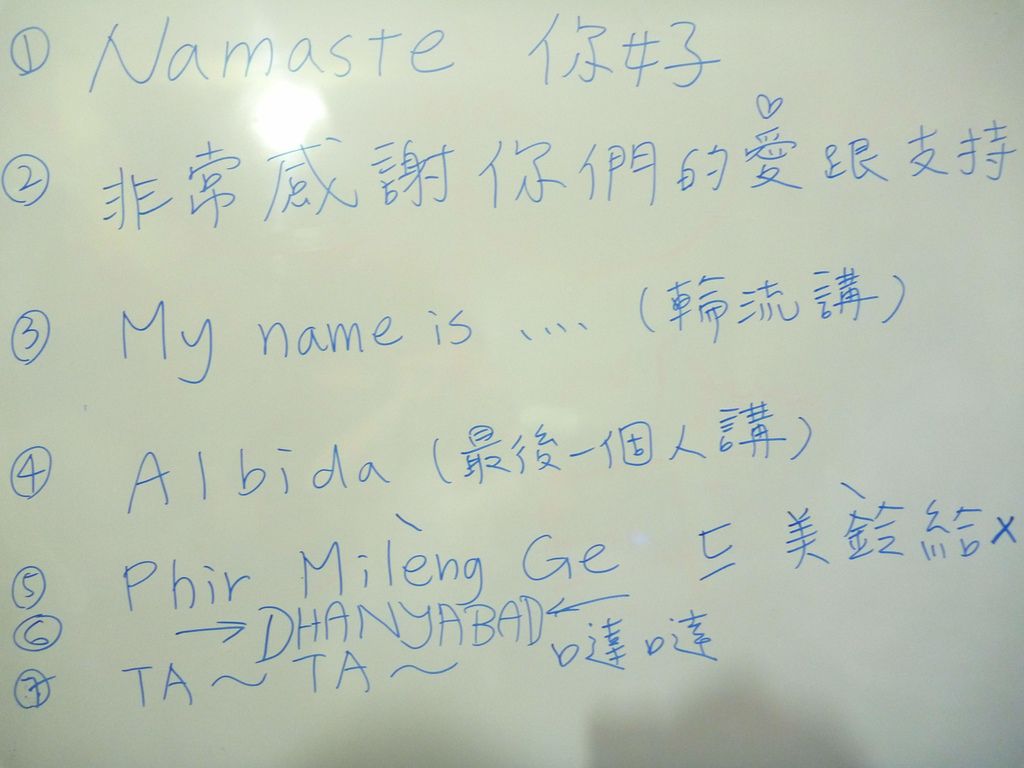 ① Namaste 你好
② 非常感謝你們的愛跟支持
③ My name is .... (輪流講)
④ Albida (最後一個人講)
⑤ Phir Milèng Ge 美鈴給x
⑥ → DHANYABAD ←
⑦ TA～TA～ 口達口達